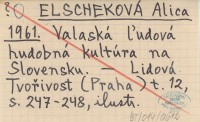 ELSCHEKOVÁ Alica
1961. Valaská Ľudová
hudobná kultúra na
Slovensku. — Lidová
Tvořivost (Praha) t. 12,
s. 247-248, ilustr.